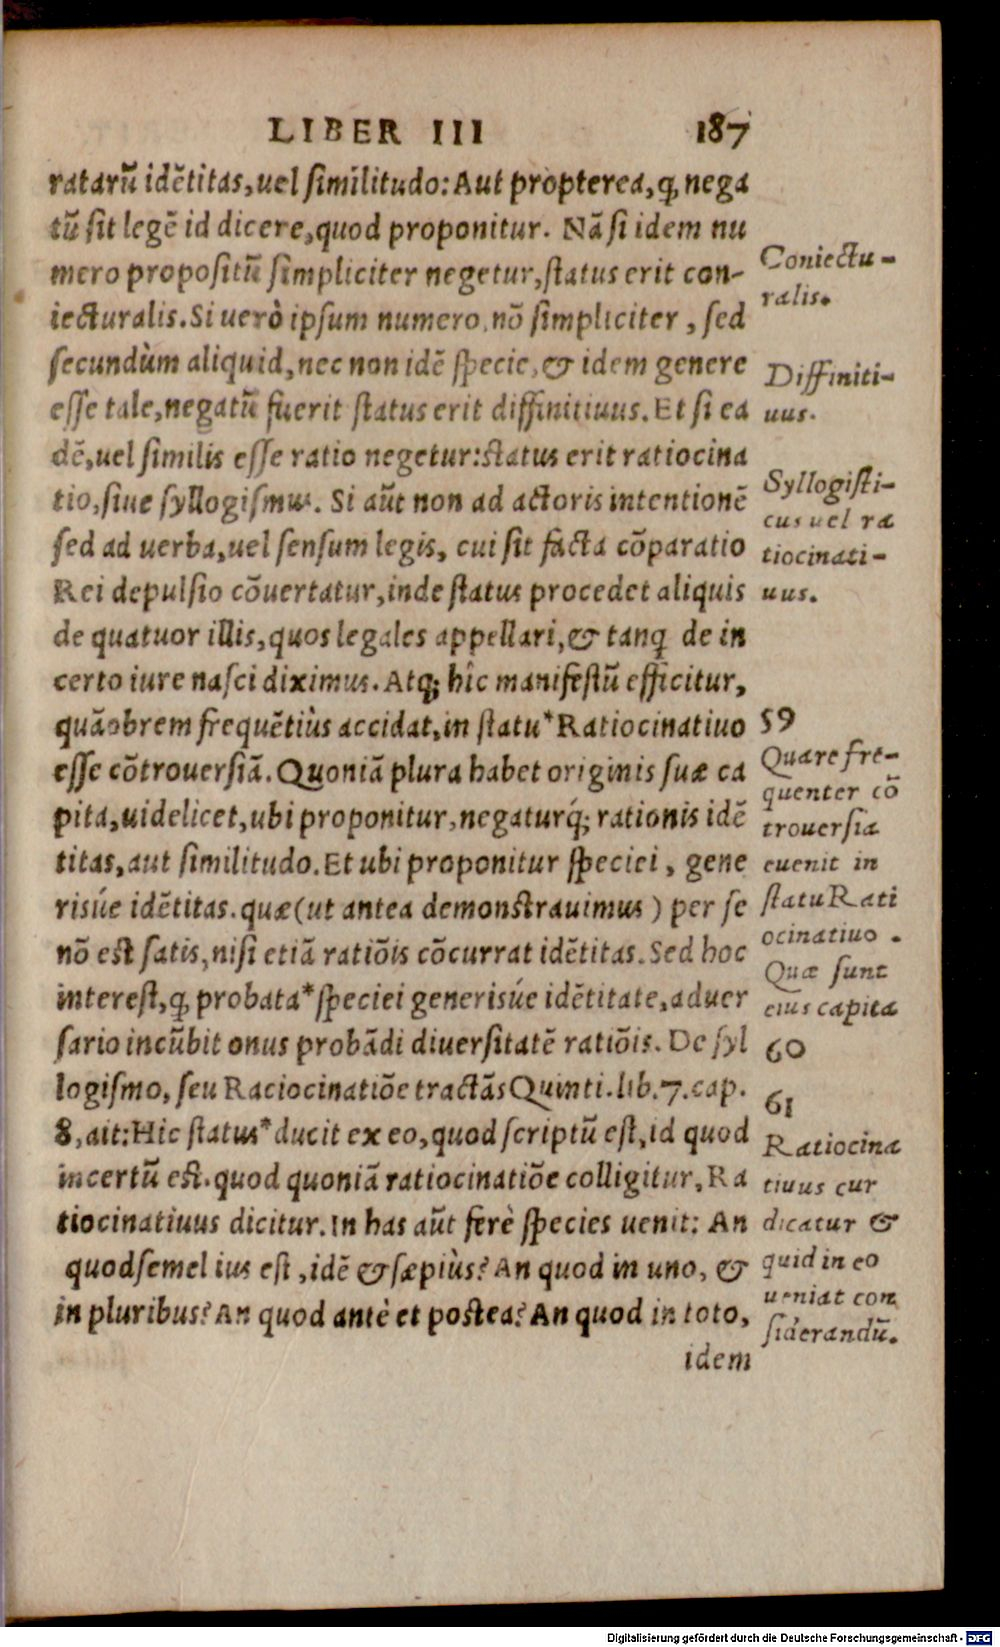 LIBER III 187
ratarũ idẽtitas, uel ſimilitudo: Aut propterea, ꝙ nega
tũ ſit legẽ id dicere, quod proponitur. Nã ſi idem nu
mero propoſitũ ſimpliciter negetur, ſtatus erit con-
iecturalis. Si uerò ipſum numero, nõ ſimpliciter, ſed
ſecundùm aliquid, nec non idẽ ſpecie, & idem genere
eſſe tale, negatũ fuerit ſtatus erit diffinitiuus. Et ſi ea
dẽ, uel ſimilis eſſe ratio negetur: ſtatus erit ratiocina
tio, ſiue ſyllogiſmus. Si aũt non ad actoris intentionẽ
ſed ad uerba, uel ſenſum legis, cui ſit facta cõparatio
Rei depulſio cõuertatur, inde ſtatus procedet aliquis
de quatuor illis, quos legales appellari, & tanꝗ̃ de in
certo iure naſci diximus. Atq; hîc manifeſtũ efficitur,
quãobrem frequẽtiùs accidat, in ſtatu * Ratiocinatiuo
eſſe cõtrouerſiã. Quoniã plura habet originis ſuæ ca
pita, uidelicet, ubi proponitur, negaturq́; rationis idẽ
titas, aut ſimilitudo. Et ubi proponitur ſpeciei, gene
risúe idẽtitas. quæ (ut antea demonſtrauimus) per ſe
nõ eſt ſatis, niſi etiã ratiõis cõcurrat idẽtitas. Sed hoc
intereſt, ꝙ probata * ſpeciei generisúe idẽtitate, aduer
ſario incũbit onus probãdi diuerſitatẽ ratiõis. De ſyl
logiſmo, ſeu Raciocinatiõe tractãs Quinti. lib. 7. cap.
8, ait: Hic ſtatus * ducit ex eo, quod ſcriptũ eſt, id quod
incertũ eſt. quod quoniã ratiocinatiõe colligitur, Ra
tiocinatiuus dicitur. In has aũt ferè ſpecies uenit: An
quod ſemel ius eſt, idẽ & ſæpiùs? An quod in uno, &
in pluribus? An quod antè et poſtea? An quod in toto,
idem
Coniectu-
ralis.
Diffiniti-
uus.
Syllogiſti-
cus uel ra
tiocinati-
uus.
59
Quare fre-
quenter cõ
trouerſia
euenit in
ſtatu Rati
ocinatiuo.
Quæ ſunt
eius capita
60
61
Ratiocina
tiuus cur
dicatur &
quid in eo
ueniat con
ſiderandũ.
Digitalisierung gefördert durch die Deutsche Forschungsgemeinschaft - DFG